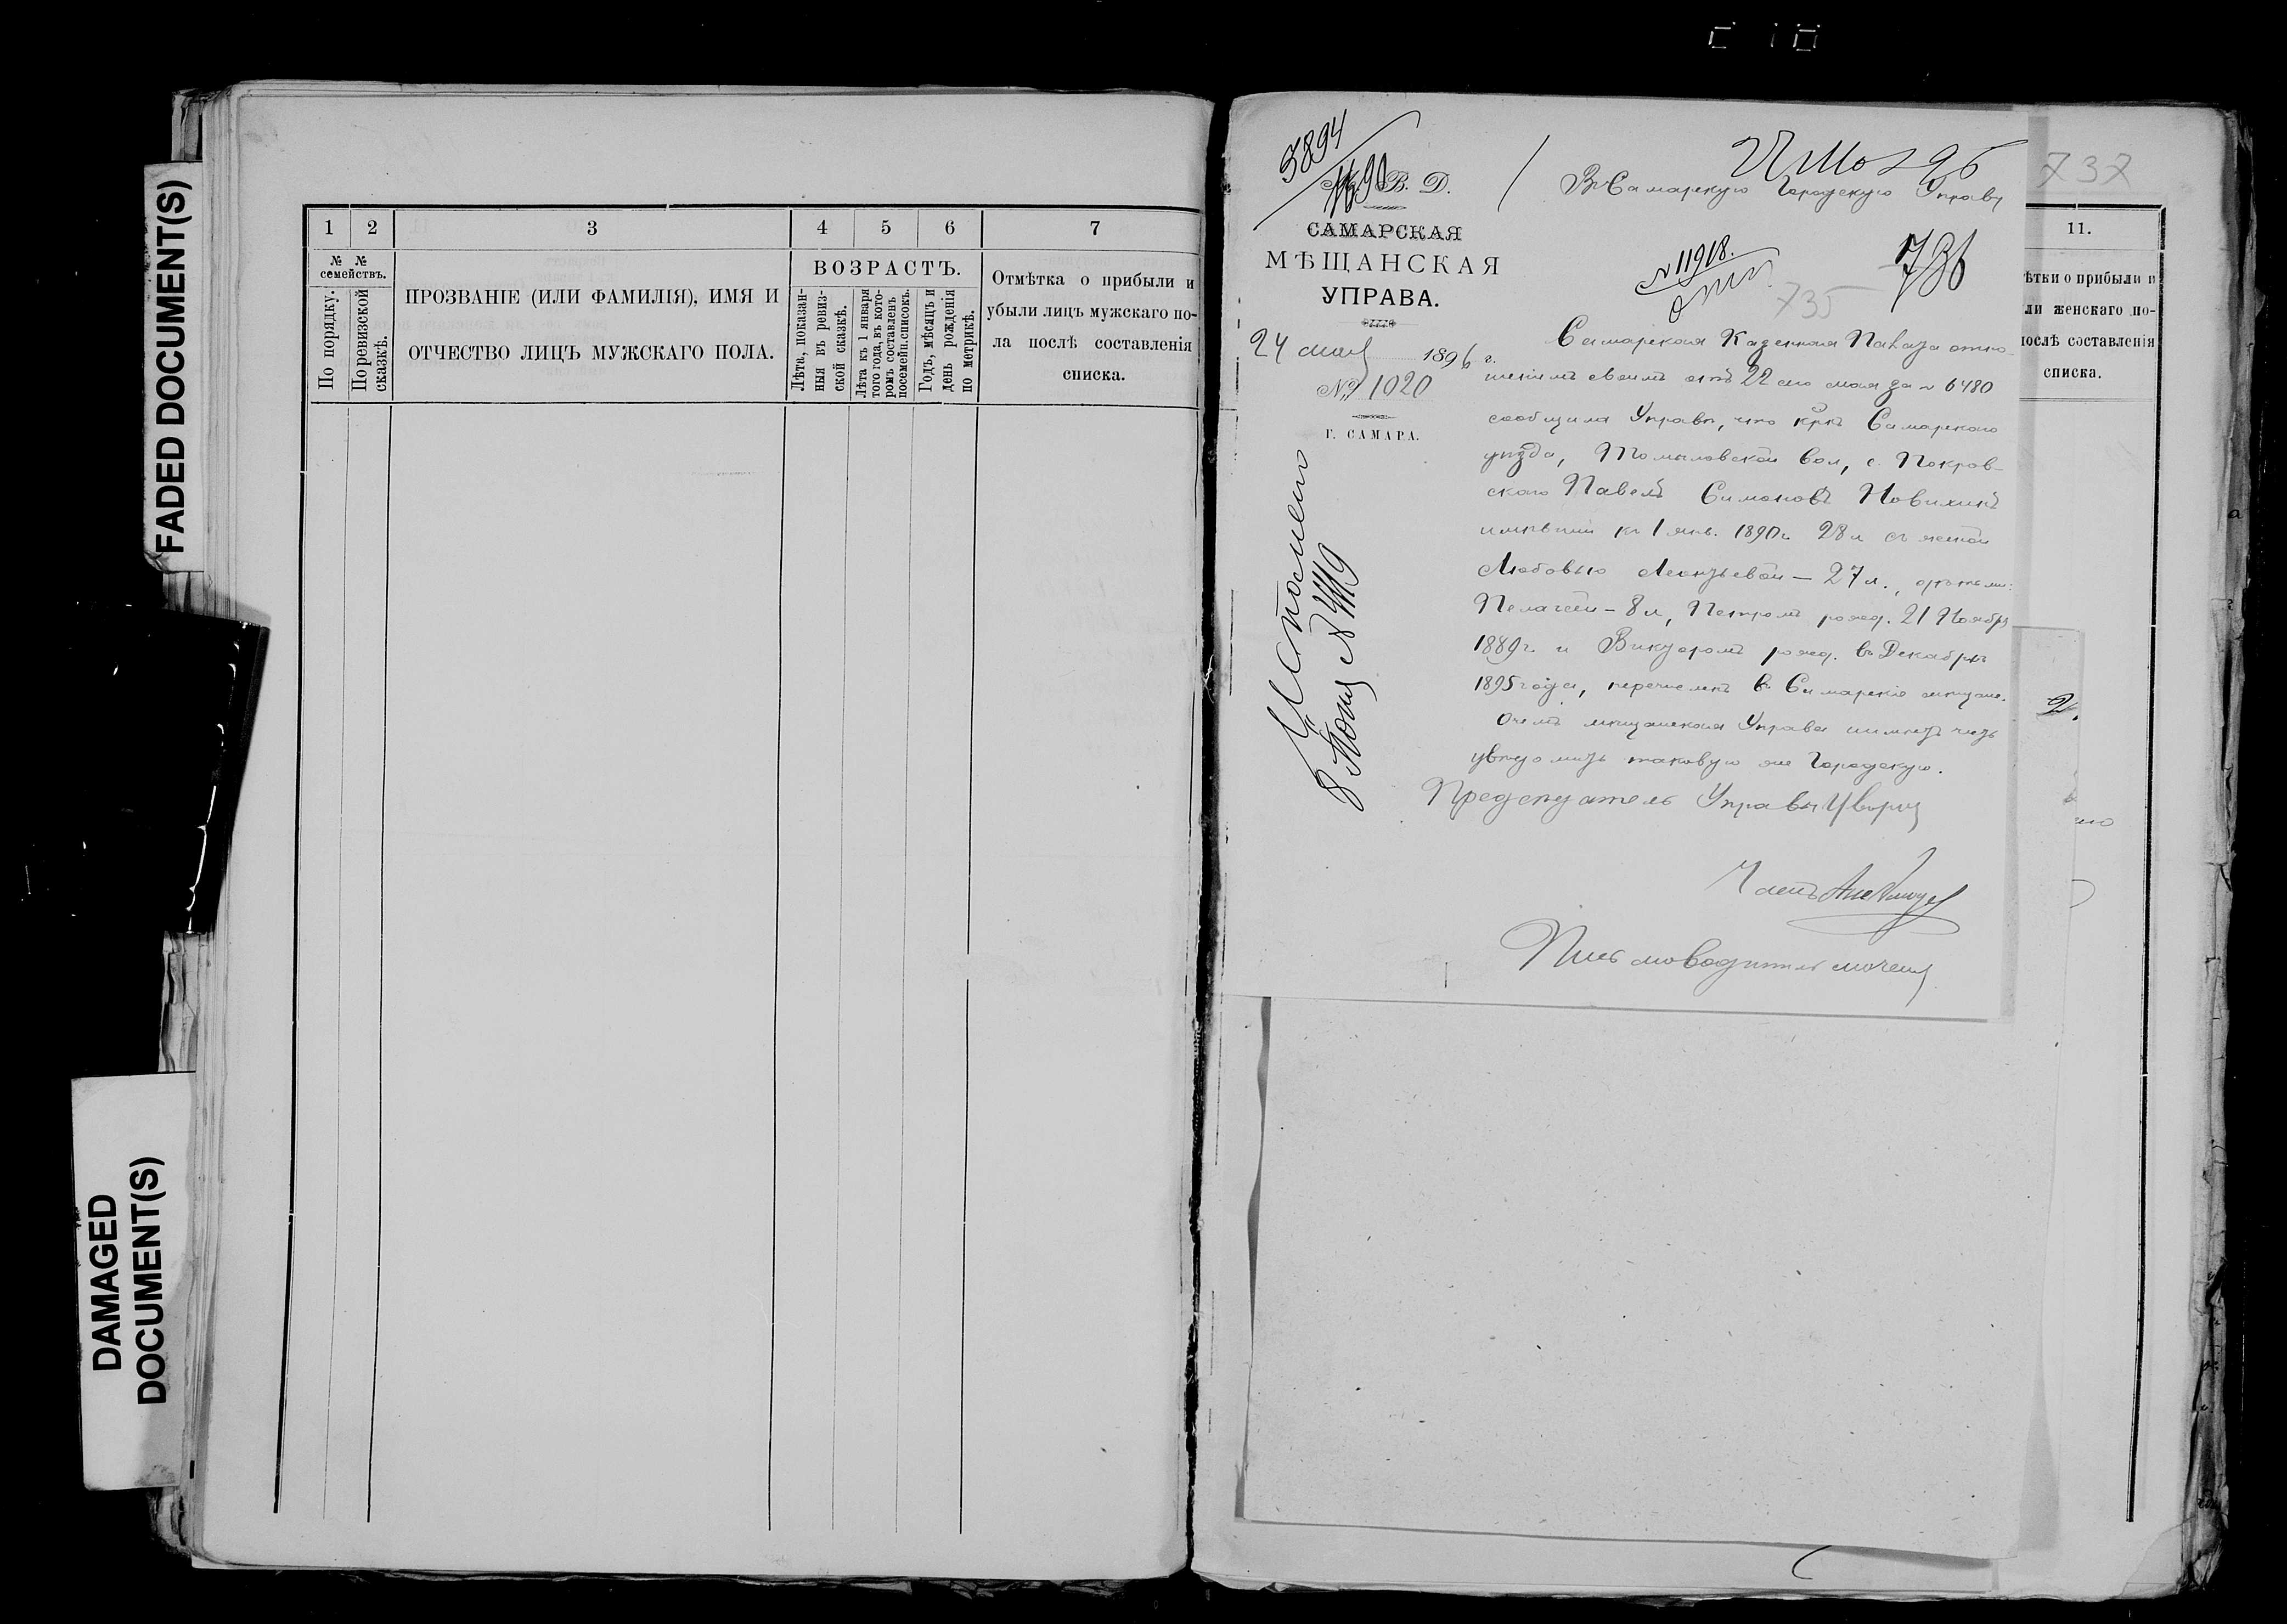 FADED DOCUMENT(S)
DAMAGED
DOCUMENT(S)
1 2 3 4 5 6 7
№ № семействъ.
По порядку.
По ревизской сказкѣ.
ПРОЗВАНІЕ (ИЛИ ФАМИЛІЯ), ИМЯ И
ОТЧЕСТВО ЛИЦЪ МУЖСКАГО ПОЛА.
ВОЗРАСТЪ.
Лѣта, показан-
ныя въ ревиз-
ской сказкѣ.
Лѣта къ 1 января
того года, въ кото-
ромъ составленъ
посемейн. списокъ.
Годъ, мѣсяцъ и
день рожденія
по метрикѣ.
Отмѣтка о прибыли и
убыли лицъ мужскаго по-
ла послѣ составленія
списка.
3894
В. Д.
САМАРСКАЯ
МѢЩАНСКАЯ
УПРАВА.
24 мая 1896 г.
№ 1020
Г. САМАРА.
Въ Самарскую Городскую Управу
№ 11918.
735
736
Самарская Казенная Палата отно-
шеніемъ своимъ отъ 22 сего мая за № 6480
сообщила Управѣ, что крнъ Самарскаго
уѣзда, Томыловской вол, с. Покров-
скаго Павелъ Симоновъ Новихинъ
имѣвшій къ 1 янв. 1890 г. 28 л съ женой
Любовью Леонтьевой — 27 л., дѣтьми:
Пелагеей — 8 л, Петромъ рожд. 21 Ноября
1889 г. и Викторомъ рожд. въ Декабрѣ
1895 года, перечисленъ въ Самарскіе мѣщане.
О чемъ мѣщанская Управа имѣетъ честь
увѣдомить таковую же Городскую.
Предсѣдатель Управы
Членъ
Письмоводитель
737
11.
ѣтки о прибыли и
ли женскаго по-
послѣ составленія
списка.
2.